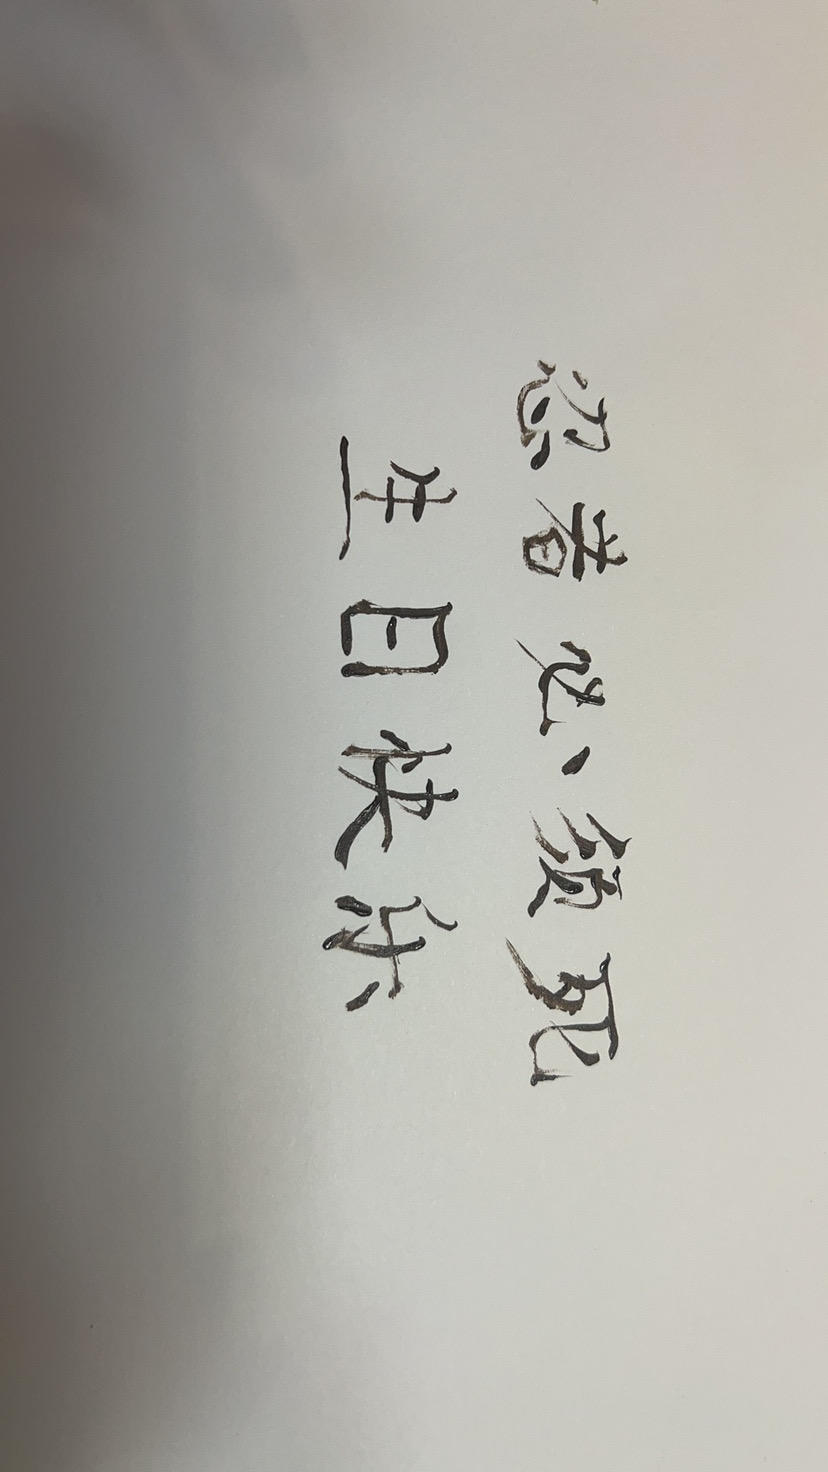 忍者必须死
生日快乐